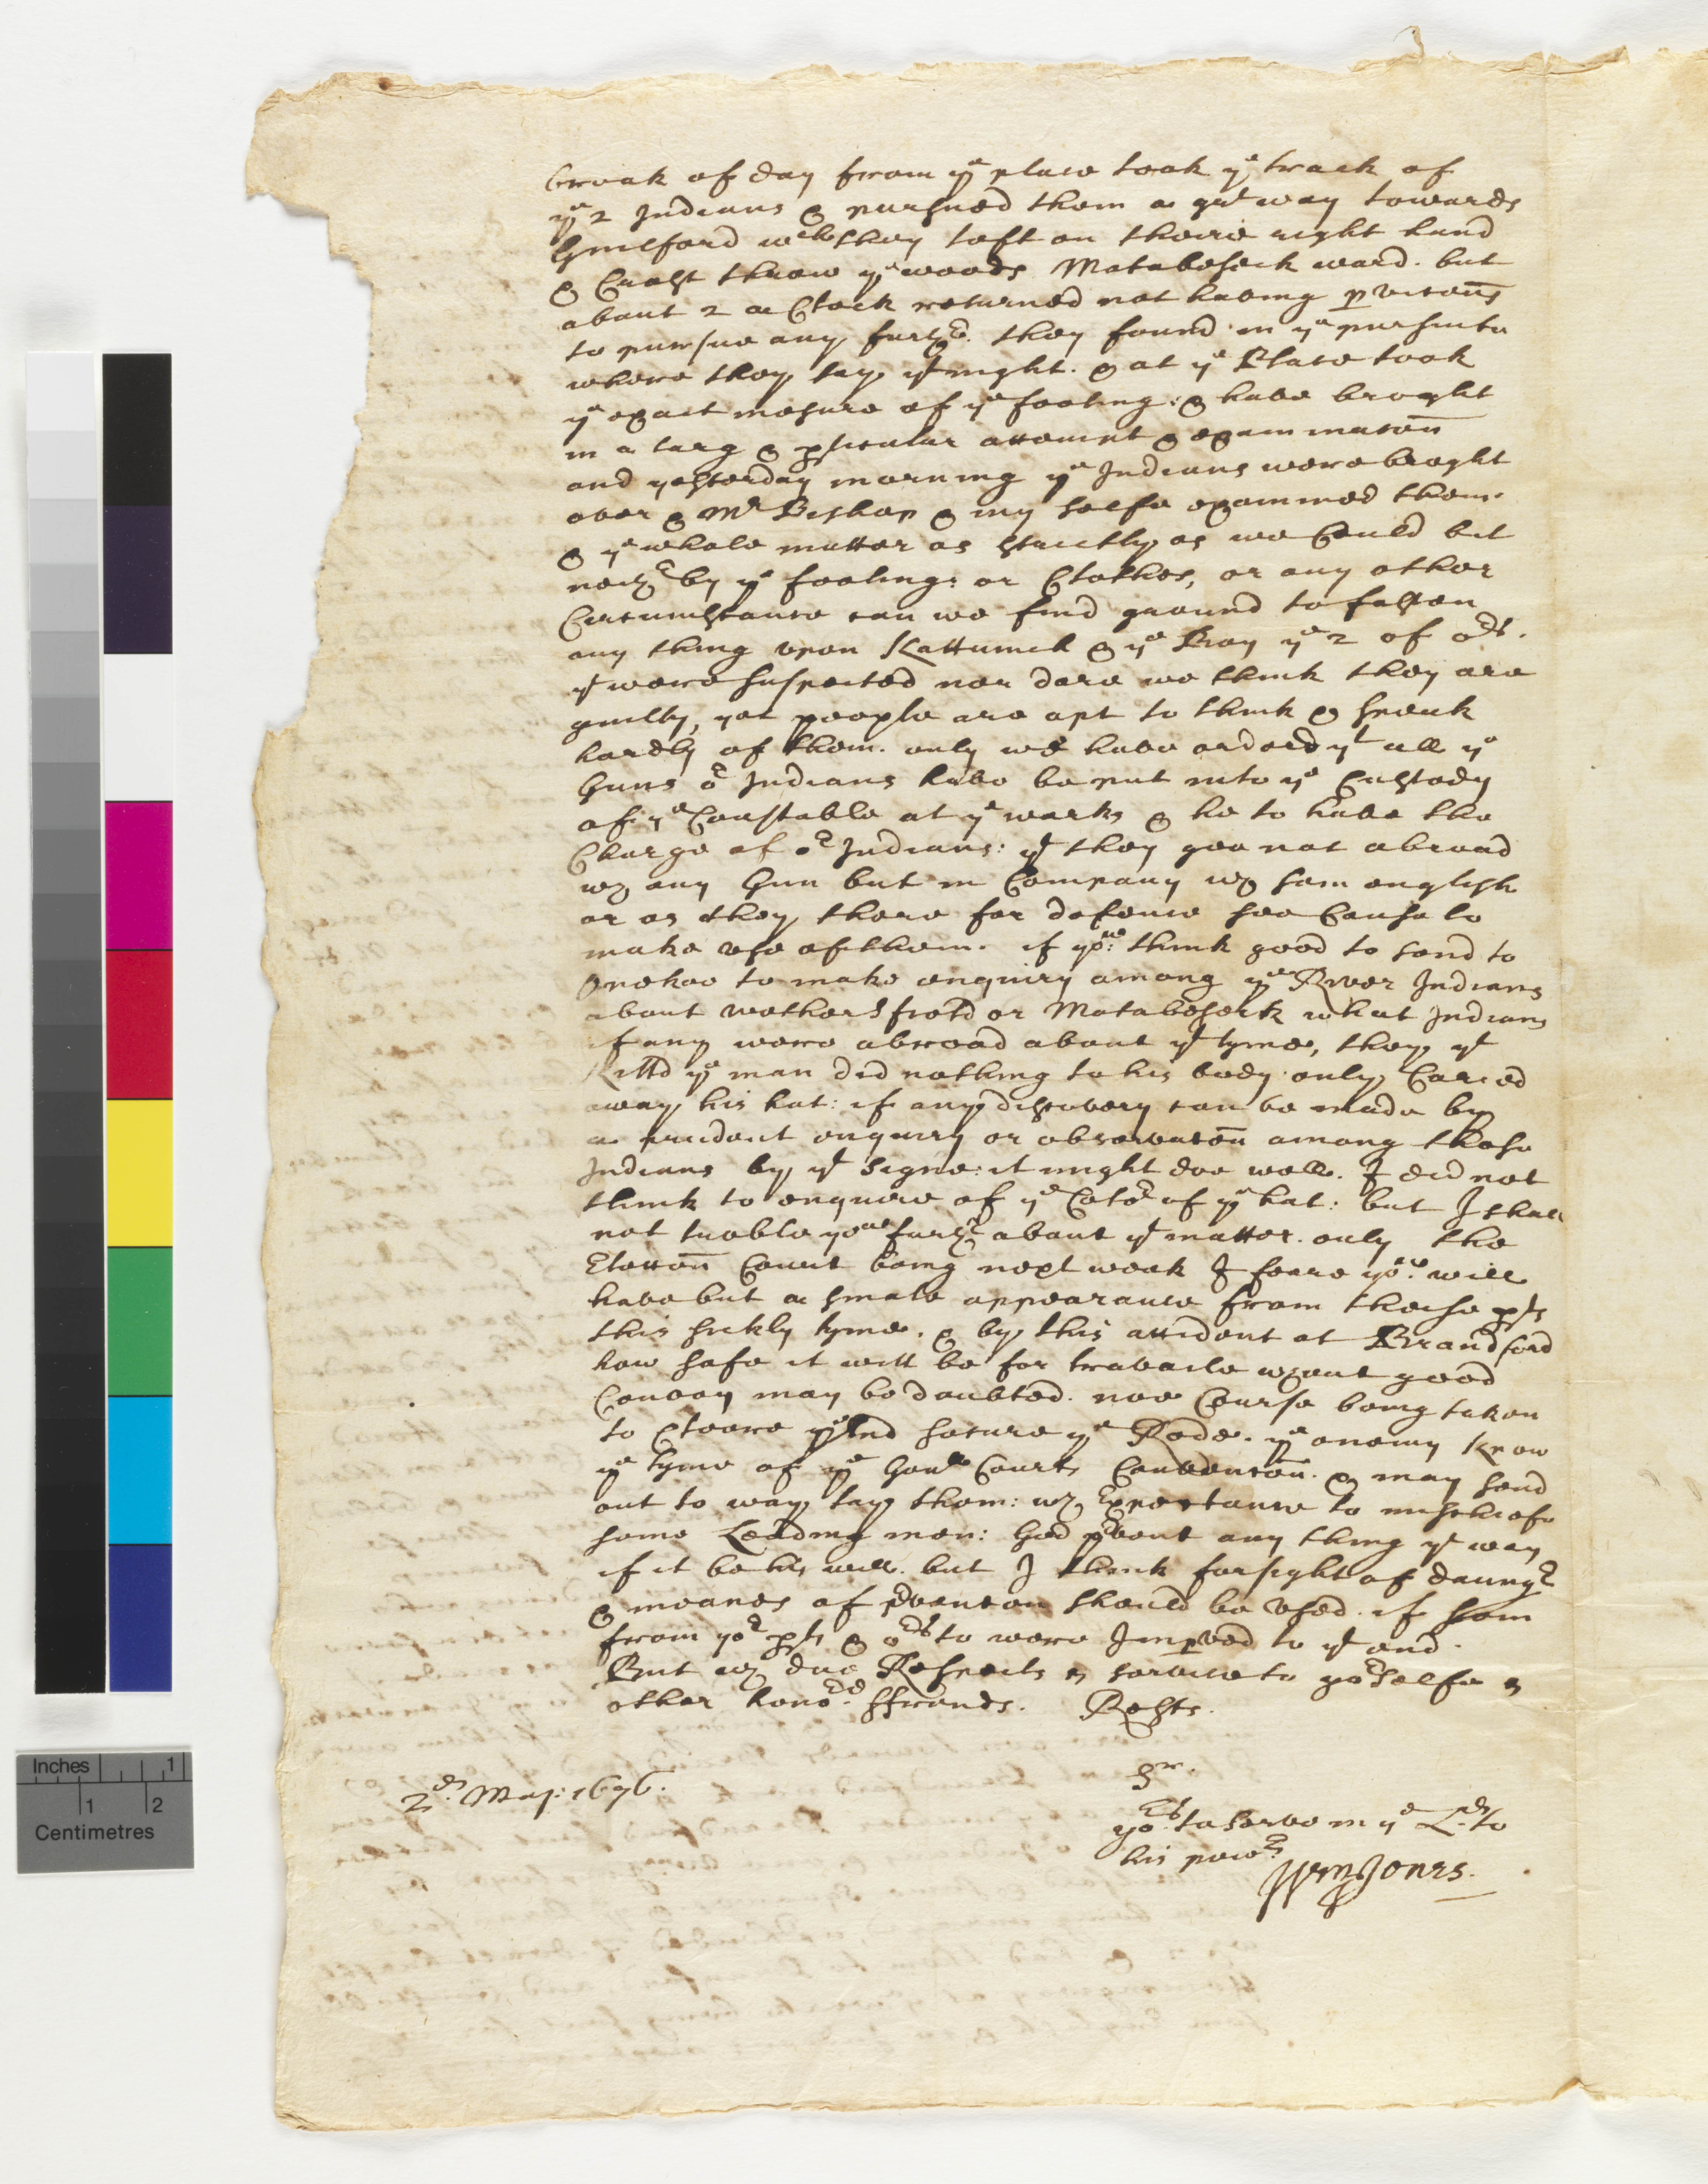 break of day from yᵉ place took yᵉ track of
yᵉ 2 Indians & pursued them a grᵗ way towards
Guilford wᶜʰ they left on theire right hand
& Crost throw yᵉ woods Matabeseck ward. but
about 2 a Clock returned not having pvicoñs
to pursue any furthᵉʳ. they found in yᵉ pursuite
where they lay yᵗ night. & at yᵉ Place took
yᵉ exact mesure of yᵉ footing: & have broght
in a larg & pticular account & examinacoñ
and yesterday morning yᵉ Indians were broght
over & Mʳ Bishop & my selfe examined them
& yᵉ whole matter as strictly as we Could but
neithʳ by yᵉ footing: or Clothes, or any other
Circumstance can we find ground to fasten
any thing upon Kattumck & yᵉ Boy yᵉ 2 of oʳˢ.
yᵗ were suspected nor dare we think they are
guilty, yet people are apt to think & speak
hardly of them. only we have orderd yᵗ all yᵉ
Guns oʳ Indians have be put into yᵉ Custody
of yᵉ Constable at yᵉ works & he to have the
Charge of oʳ Indians: yᵗ they goe not abroad
wᵗʰ any Gun but in Company wᵗʰ som english
or as they there for defence see Cause to
make use of them. if yoᵘᵉ: think good to send to
Onekoe to make enquiry among yᵉ River Indians
about wethersfeild or Matabeseck what Indians
if any were abroad about yᵗ tyme, they yᵗ
Killd yᵉ man did nothing to his body only Caried
away his hat: if any discovery can be made by
a prudent enquiry or observacoñ among those
Indians by yᵗ signe: it might doe well. I did not
think to enquire of yᵉ Coloʳ of yᵉ hat: but I shall
not truble youᵉ furthʳ about yᵗ matter. only the
Eleccoñ Court being next week I feare yoᵘᵉ: will
have but a smale appearance from these pᵗˢ
this sickly tyme. & by this accident at Brandford
how safe it will be for travaile wᵗʰout good
Convoy may be doubted. noe Course being taken
to Cleere yᵉ and secure yᵉ Rode. yᵉ enemy Know
yᵉ tyme of yᵉ Genˡˡ Courts Convencoñ. & may send
out to way lay them: wᵗʰ Expectance to mischiefe
some Leading men: God pʳvent any thing yᵗ way
if it be his will. but I think forsight of daungʳ
& meanes of pʳvencon should be used. if som
from yoʳ pᵗˢ & oʳˢ to were Impved to yᵗ end.
But wᵗʰ due Respects & service to yoʳselfe &
other honoʳᵈ. ffreinds. Rests.
Sʳ.
2ᵈ. May: 1676.
yoʳˢ to serve in yᵉ Lʳᵈ to
his powʳ.
Wm Jones.
Inches 1
1 2
Centimetres